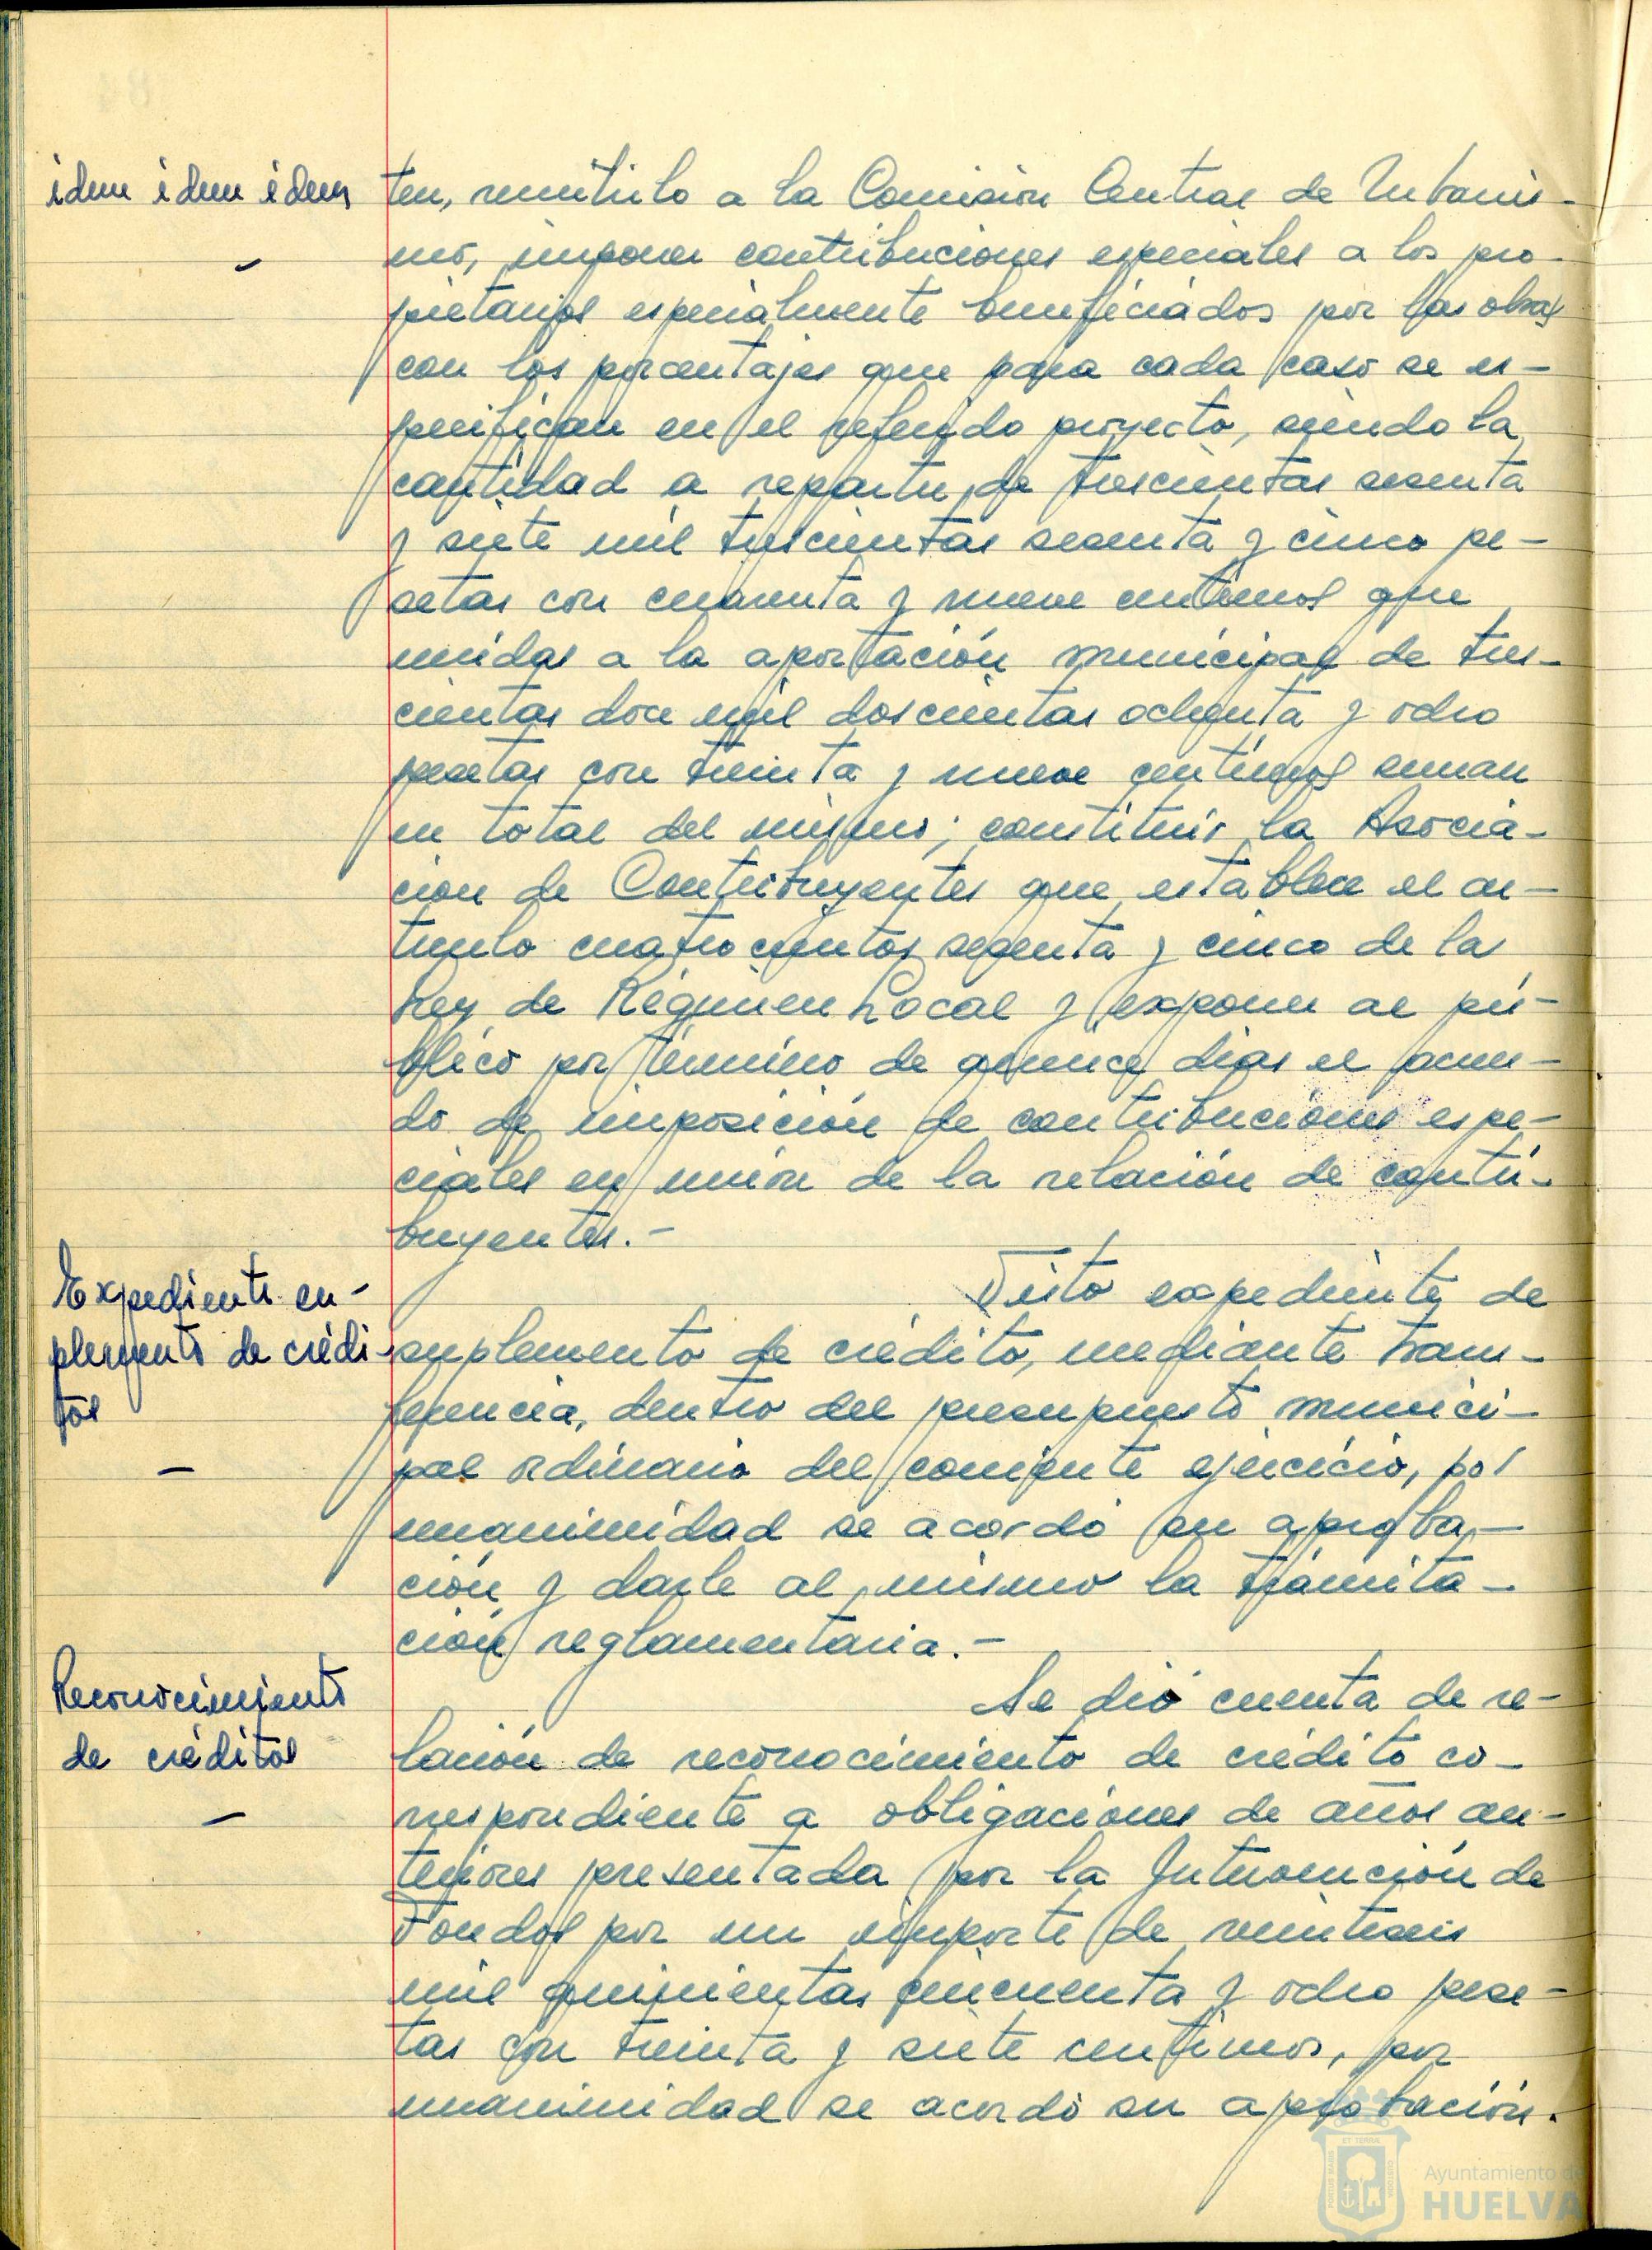 idem idem idem
ten, remitirlo a la Comisión Central de Urbanis-
mo, imponer contribuciones especiales a los pro-
pietarios especialmente beneficiados por las obras
con los porcentajes que para cada caso se es-
pecifican en el referido proyecto, siendo la
cantidad a repartir, de trescientas sesenta
y siete mil trescientas sesenta y cinco pe-
setas con cuarenta y nueve centimos que
unidas a la aportación municipal de tres-
cientas doce mil doscientas ochenta y ocho
pesetas con treinta y nueve centimos suman
en total del mismo; constituir la Asocia-
cion de Contribuyentes que establece el ar-
ticulo cuatrocientos sesenta y cinco de la
Ley de Régimen Local y exponer al pú-
blico por término de quince dias el acuer-
do de imposición de contribuciones espe-
ciales en unión de la relación de contri-
buyentes.-
Expediente su-
plemento de crédi-
tos
Visto expediente de
suplemento de crédito, mediante trans-
ferencia, dentro del presupuesto munici-
pal ordinario del corriente ejercicio, por
unanimidad se acordó su aproba-
ción y darle al mismo la tramita-
ción reglamentaria.-
Reconocimiento
de créditos
Se dió cuenta de re-
lación de reconocimiento de crédito co-
rrespondiente a obligaciones de años an-
teriores presentada por la Intervención de
Fondos por un importe de veintiseis
mil quinientas cincuenta y ocho pese-
tas con treinta y siete centimos, por
unanimidad se acordó su aprobación.
Ayuntamiento de
HUELVA